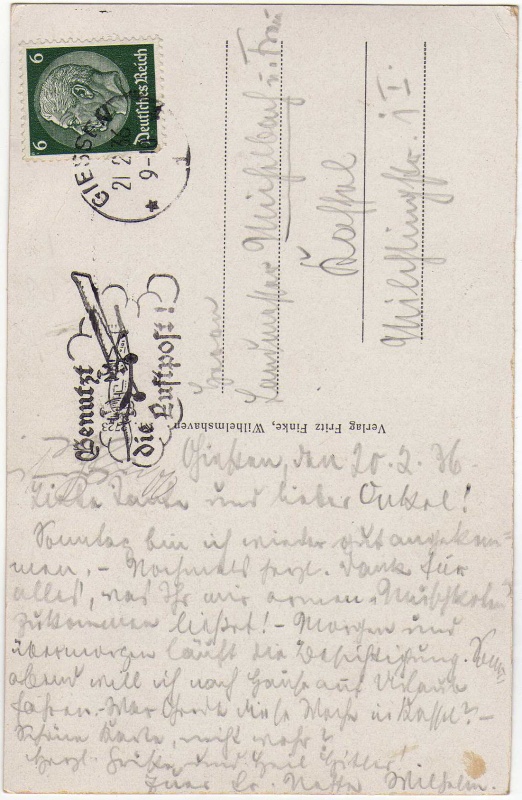 6
6
Deutsches Reich
GIESSEN
21.2.36
9-10
Benutzt
die Luftpost!
Herrn
Landmesser und Frau
Kassel
Verlag Fritz Finke, Wilhelmshaven.
723
Gießen, den 20.2.36
Liebe Tante und lieber Onkel!
Sonntag bin ich wieder gut angekom=
men. - Nochmals herzl. Dank für
alles, was Ihr mir armen Muschkoten
zukommen ließet! - Morgen und
übermorgen läuft die Besichtigung.
abend will ich nach Hause auf Urlaub
fahren. War diese Woche in Kassel? -
Schöne Karte, nicht wahr?
Herzl. Grüße und Heil Hitler!
Euer Neffe Wilhelm.